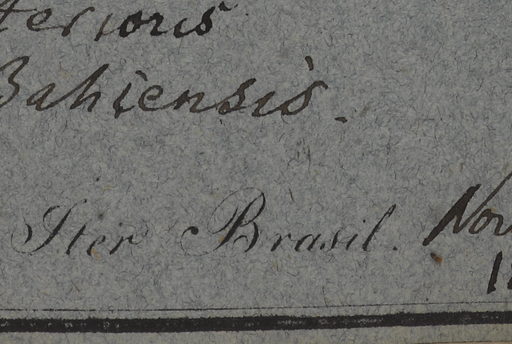 terioris
Bahiensis.
Iter Brasil. Nov